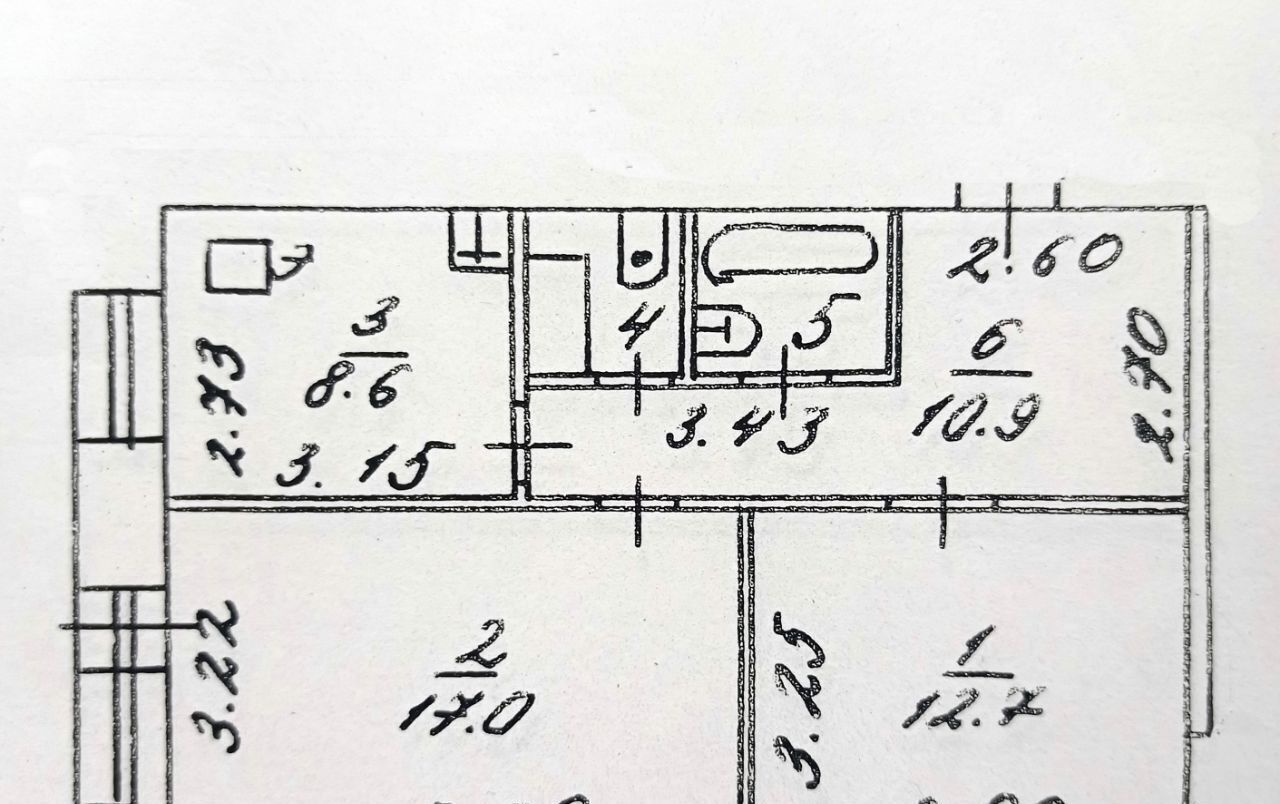 2.60
3
8.6
2.73
3.15
4
5
6
10.9
2.70
3.43
2
17.0
3.22
1
12.7
3.25